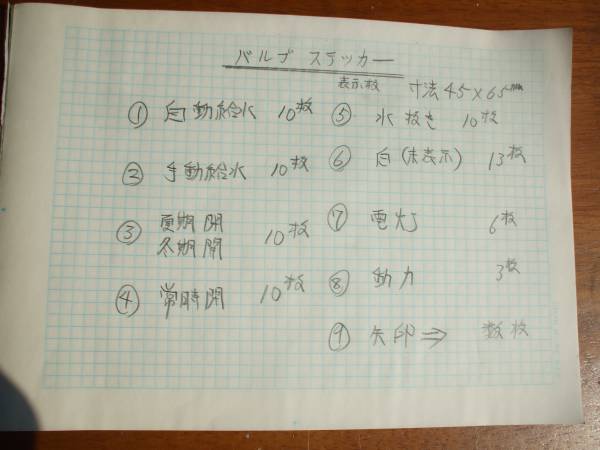 バルブ ステッカー
表示板 寸法 45×65mm
① 自動給水 10枚
② 手動給水 10枚
③ 夏期開
冬期閉 10枚
④ 常時開 10枚
⑤ 水抜き 10枚
⑥ 白(未表示) 13枚
⑦ 電灯 6枚
⑧ 動力 3枚
⑨ 矢印⇒ 数枚